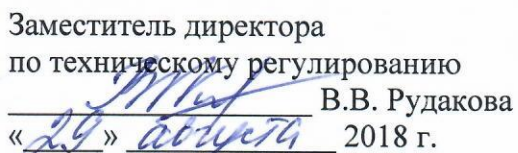 Заместитель директора
по техническому регулированию
В.В. Рудакова
«29» августа 2018 г.